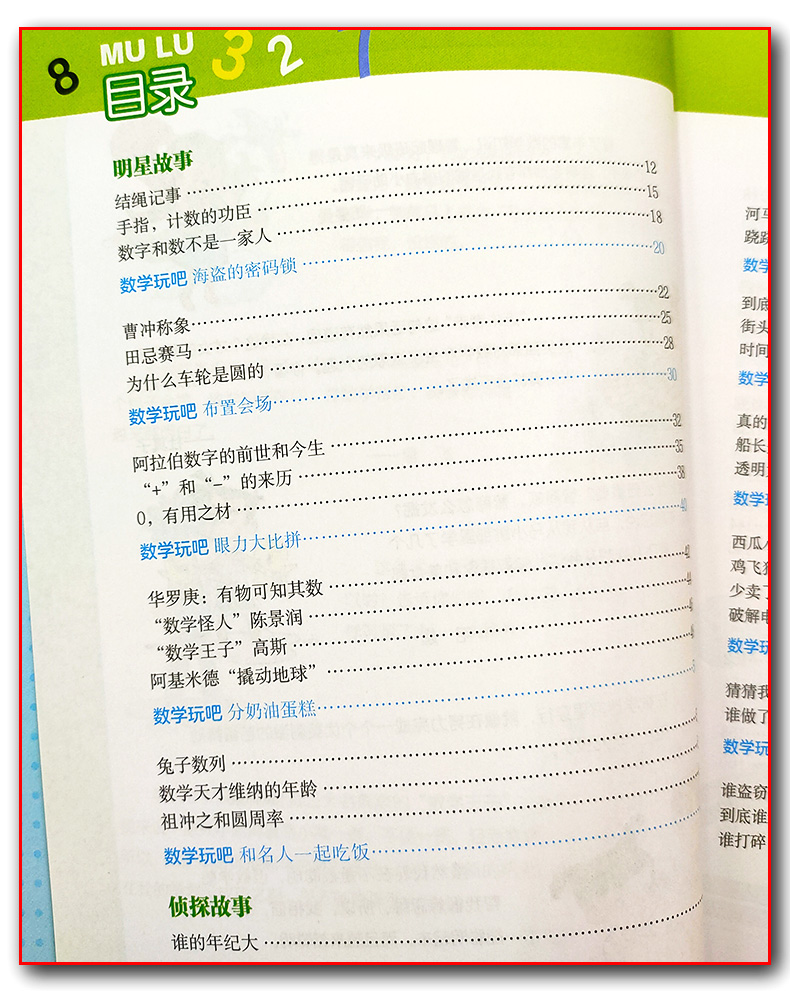 8 MU LU 3 2
目录
明星故事
结绳记事 12
手指，计数的功臣 15
数字和数不是一家人 18
数学玩吧 海盗的密码锁 20
曹冲称象 22
田忌赛马 25
为什么车轮是圆的 28
数学玩吧 布置会场 30
阿拉伯数字的前世和今生 32
“+”和“-”的来历 35
0，有用之材 38
数学玩吧 眼力大比拼 40
华罗庚：有物可知其数 42
“数学怪人”陈景润 44
“数学王子”高斯
阿基米德“撬动地球”
数学玩吧 分奶油蛋糕
兔子数列
数学天才维纳的年龄
祖冲之和圆周率
数学玩吧 和名人一起吃饭
侦探故事
谁的年纪大
河马
跷跷
数学
到底
街头
时间
数学
真的
船长
透明
数学
西瓜
鸡飞
少卖
破解
数学玩
猜猜我
谁做了
数学玩
谁盗窃
到底谁
谁打碎